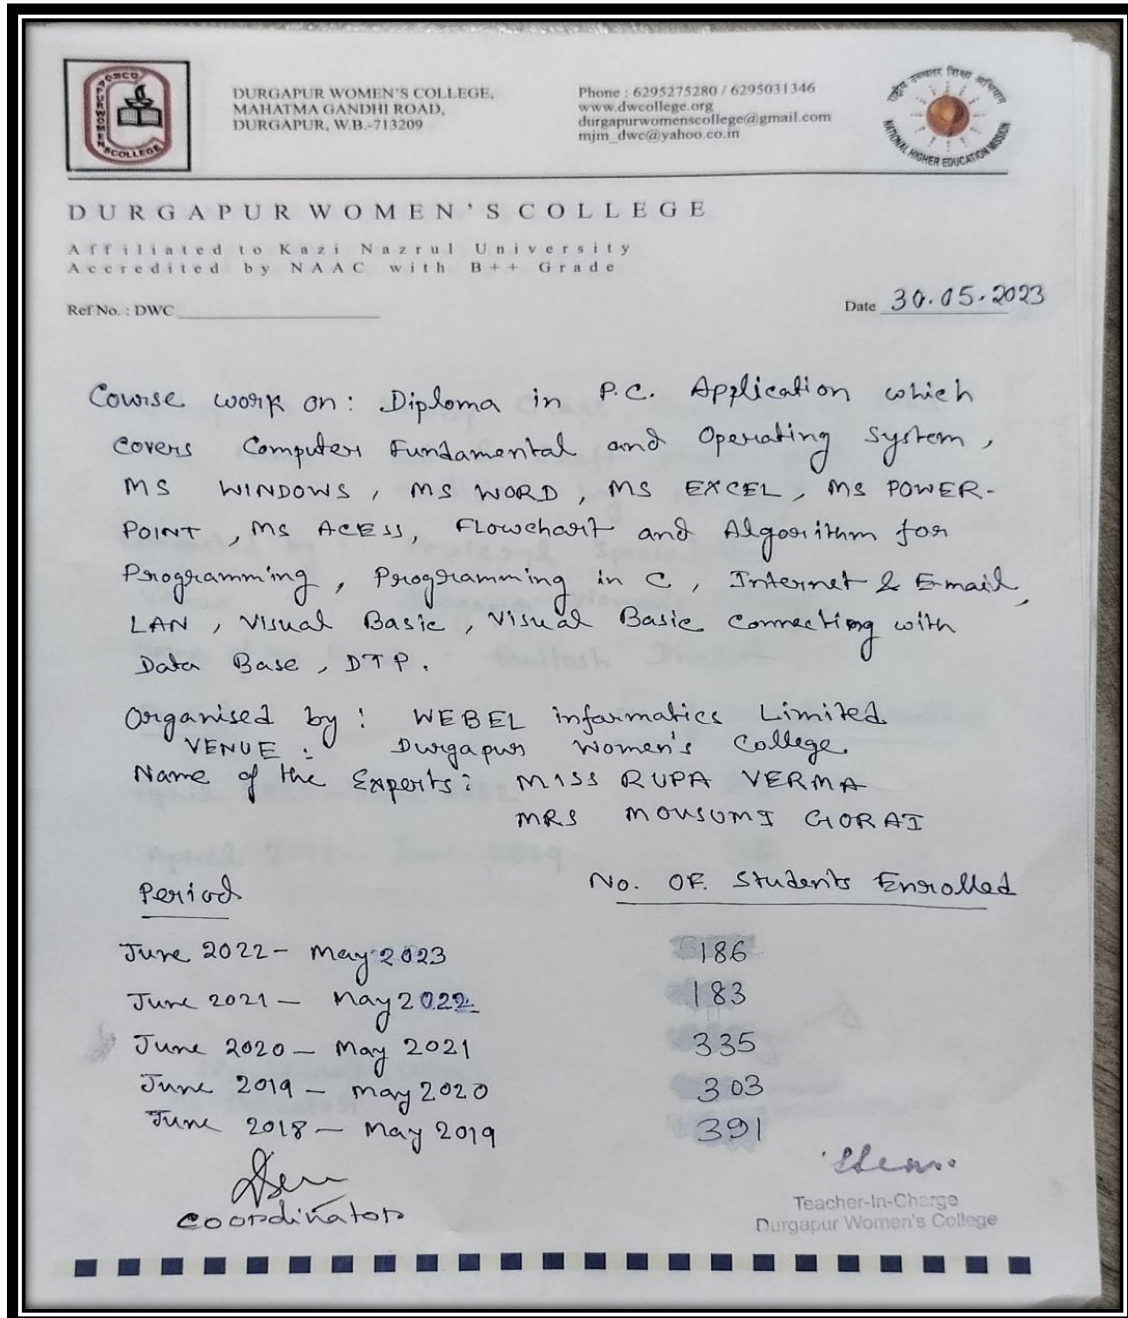 DURGAPUR WOMEN'S COLLEGE,
MAHATMA GANDHI ROAD,
DURGAPUR, W.B.-713209
Phone : 6295275280 / 6295031346
www.dwcollege.org
durgapurwomenscollege@gmail.com
mjm_dwc@yahoo.co.in
राष्ट्रीय उच्चतर शिक्षा अभियान
NATIONAL HIGHER EDUCATION MISSION
DURGAPUR WOMEN'S COLLEGE
Affiliated to Kazi Nazrul University
Accredited by NAAC with B++ Grade
Ref No. : DWC
Date 30.05.2023
Course work on: Diploma in P.C. Application which
covers Computer Fundamental and Operating System,
MS WINDOWS, MS WORD, MS EXCEL, MS POWER-
POINT, MS ACESS, Flowchart and Algorithm for
Programming, Programming in C, Internet & E-mail,
LAN, Visual Basic, Visual Basic Connecting with
Data Base, DTP.
Organised by: WEBEL informatics Limited
VENUE: Durgapur Women's College.
Name of the Experts: MISS RUPA VERMA
MRS MOUSUMI GORAI
Period No. OF. Students Enrolled
June 2022 - May 2023 186
June 2021 - May 2022 183
June 2020 - May 2021 335
June 2019 - May 2020 303
June 2018 - May 2019 391
Coordinator
Teacher-In-Charge
Durgapur Women's College